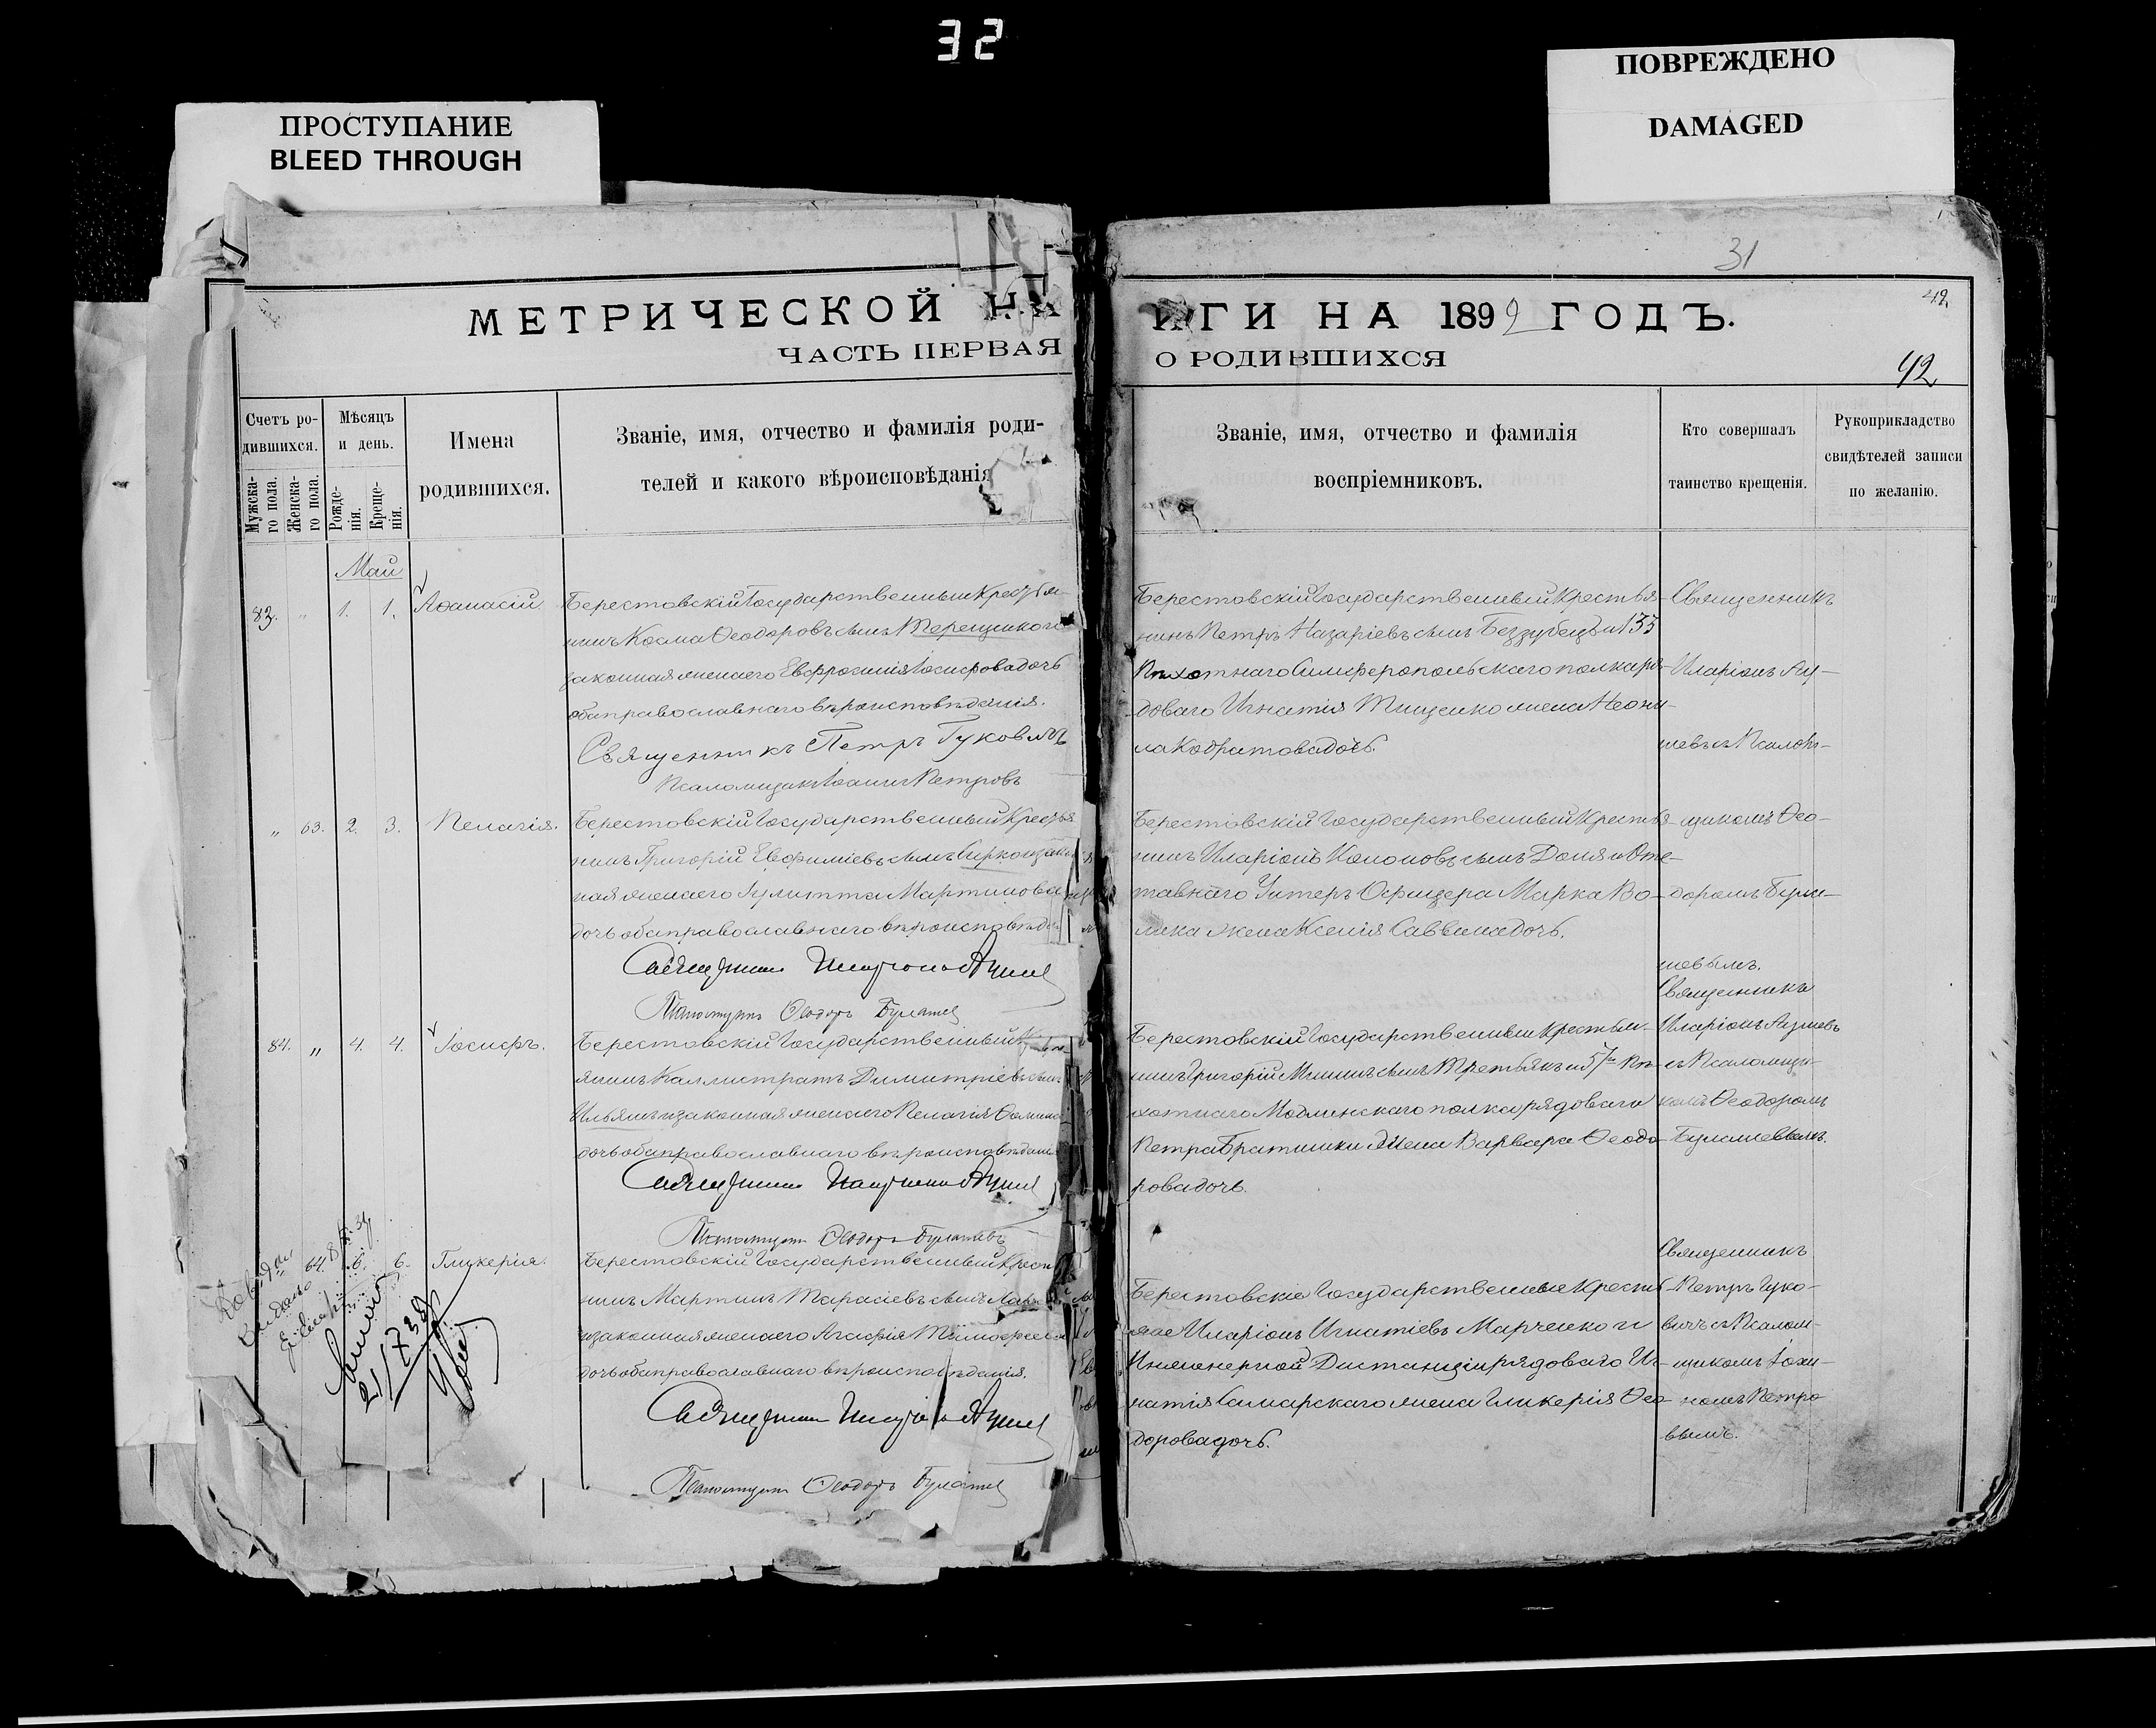 32
ПРОСТУПАНИЕ
BLEED THROUGH
ПОВРЕЖДЕНО
DAMAGED
31
МЕТРИЧЕСКОЙ КН
ИГИ НА 1899 ГОДЪ.
42
ЧАСТЬ ПЕРВАЯ
О РОДИВШИХСЯ
42
Счетъ ро-
дившихся.
Мужска-
го пола.
Женска-
го пола.
Мѣсяцъ
и день.
Рожде-
нія.
Креще-
нія.
Имена
родившихся.
Званіе, имя, отчество и фамилія роди-
телей и какого вѣроисповѣданія
Званіе, имя, отчество и фамилія
воспріемниковъ.
Кто совершалъ
таинство крещенія.
Рукоприкладство
свидѣтелей записи
по желанію.
Май
83. " 1. 1. Аѳанасій
Берестовскій Государственный Крестья-
нинъ Косма Ѳеодоровъ сынъ Терещенко и
законная жена его Евфросинія Іосифова дочь
оба православнаго вѣроисповѣданія.
Священникъ Петръ Гуковичъ
Псаломщикъ Іоаннъ Петровъ
Берестовскій Государственный Крестья-
нинъ Петръ Назаріевъ сынъ Беззубецъ и 133
Пѣхотнаго Симферопольскаго полка ря-
доваго Игнатія Тищенко жена Неони-
ла Кодратова дочь.
Священникъ
Иларіонъ
съ Псалом-
" 63. 2. 3. Пелагія.
Берестовскій Государственный Крестья
нинъ Григорій Евфиміевъ сынъ Сирко и закон
ная жена его Іулитта Мартинова
дочь оба православнаго вѣроисповѣда
Священникъ Иларіонъ
Псаломщикъ Ѳеодоръ
Берестовскій Государственный Крестья-
нинъ Иларіонъ Кононовъ сынъ Доня и От-
ставнаго Унтеръ Офицера Марка Во-
жена Ксенія Саввина дочь.
щикомъ Ѳео-
доромъ
84. " 4. 4. Іосифъ.
Берестовскій Государственный
янинъ Каллистратъ Димитріевъ сынъ
Ильяшъ и законная жена его Пелагія Ѳомина
дочь оба православнаго вѣроисповѣдан
Священникъ Иларіонъ
Псаломщикъ Ѳеодоръ
Берестовскій Государственный Крестья-
нинъ Григорій Мининъ сынъ Третьякъ и 57го Пѣ-
хотнаго Модлинскаго полка рядоваго
Петра Братишки жена Варвара Ѳеодо-
рова дочь.
Священникъ
Иларіонъ
съ Псаломщи-
комъ Ѳеодоромъ
" 64. 6. 6. Гликерія.
Берестовскій Государственный Крестья
нинъ Мартинъ Тарасіевъ сынъ
и законная жена его Агафія Тимофеева
дочь оба православнаго вѣроисповѣданія.
Священникъ Иларіонъ
Псаломщикъ Ѳеодоръ
Берестовскіе Государственные Кресть-
яне Иларіонъ Игнатіевъ Марченко и
Инженерной Дистанціи рядоваго Иг-
натія Самарскаго жена Гликерія Ѳео-
дорова дочь.
Священникъ
Петръ Гуко-
вичъ съ Псалом-
щикомъ Іоан-
номъ Петро-
вымъ.